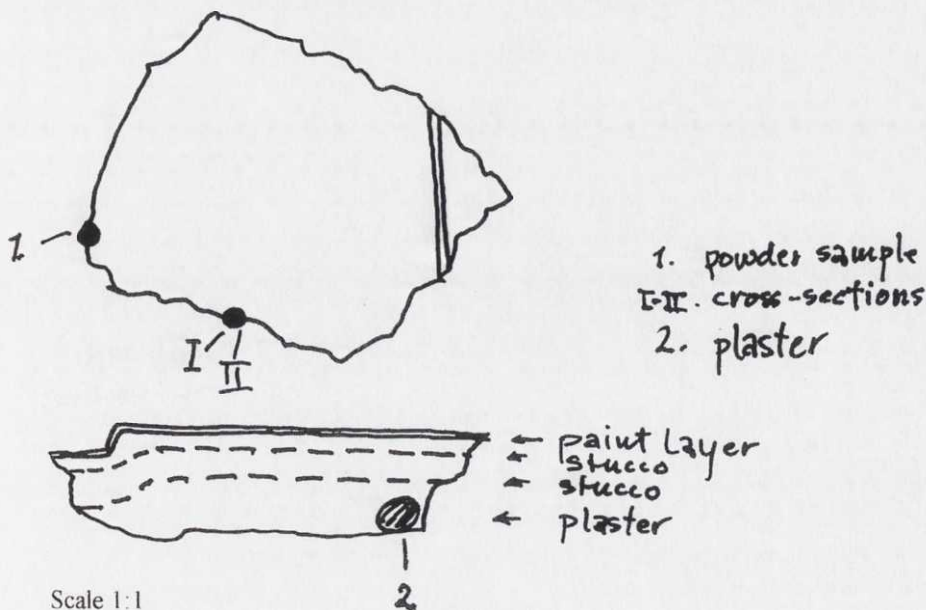 1
I
II
1. powder sample
I-II. cross-sections
2. plaster
← paint layer
← stucco
← stucco
← plaster
2
Scale 1:1